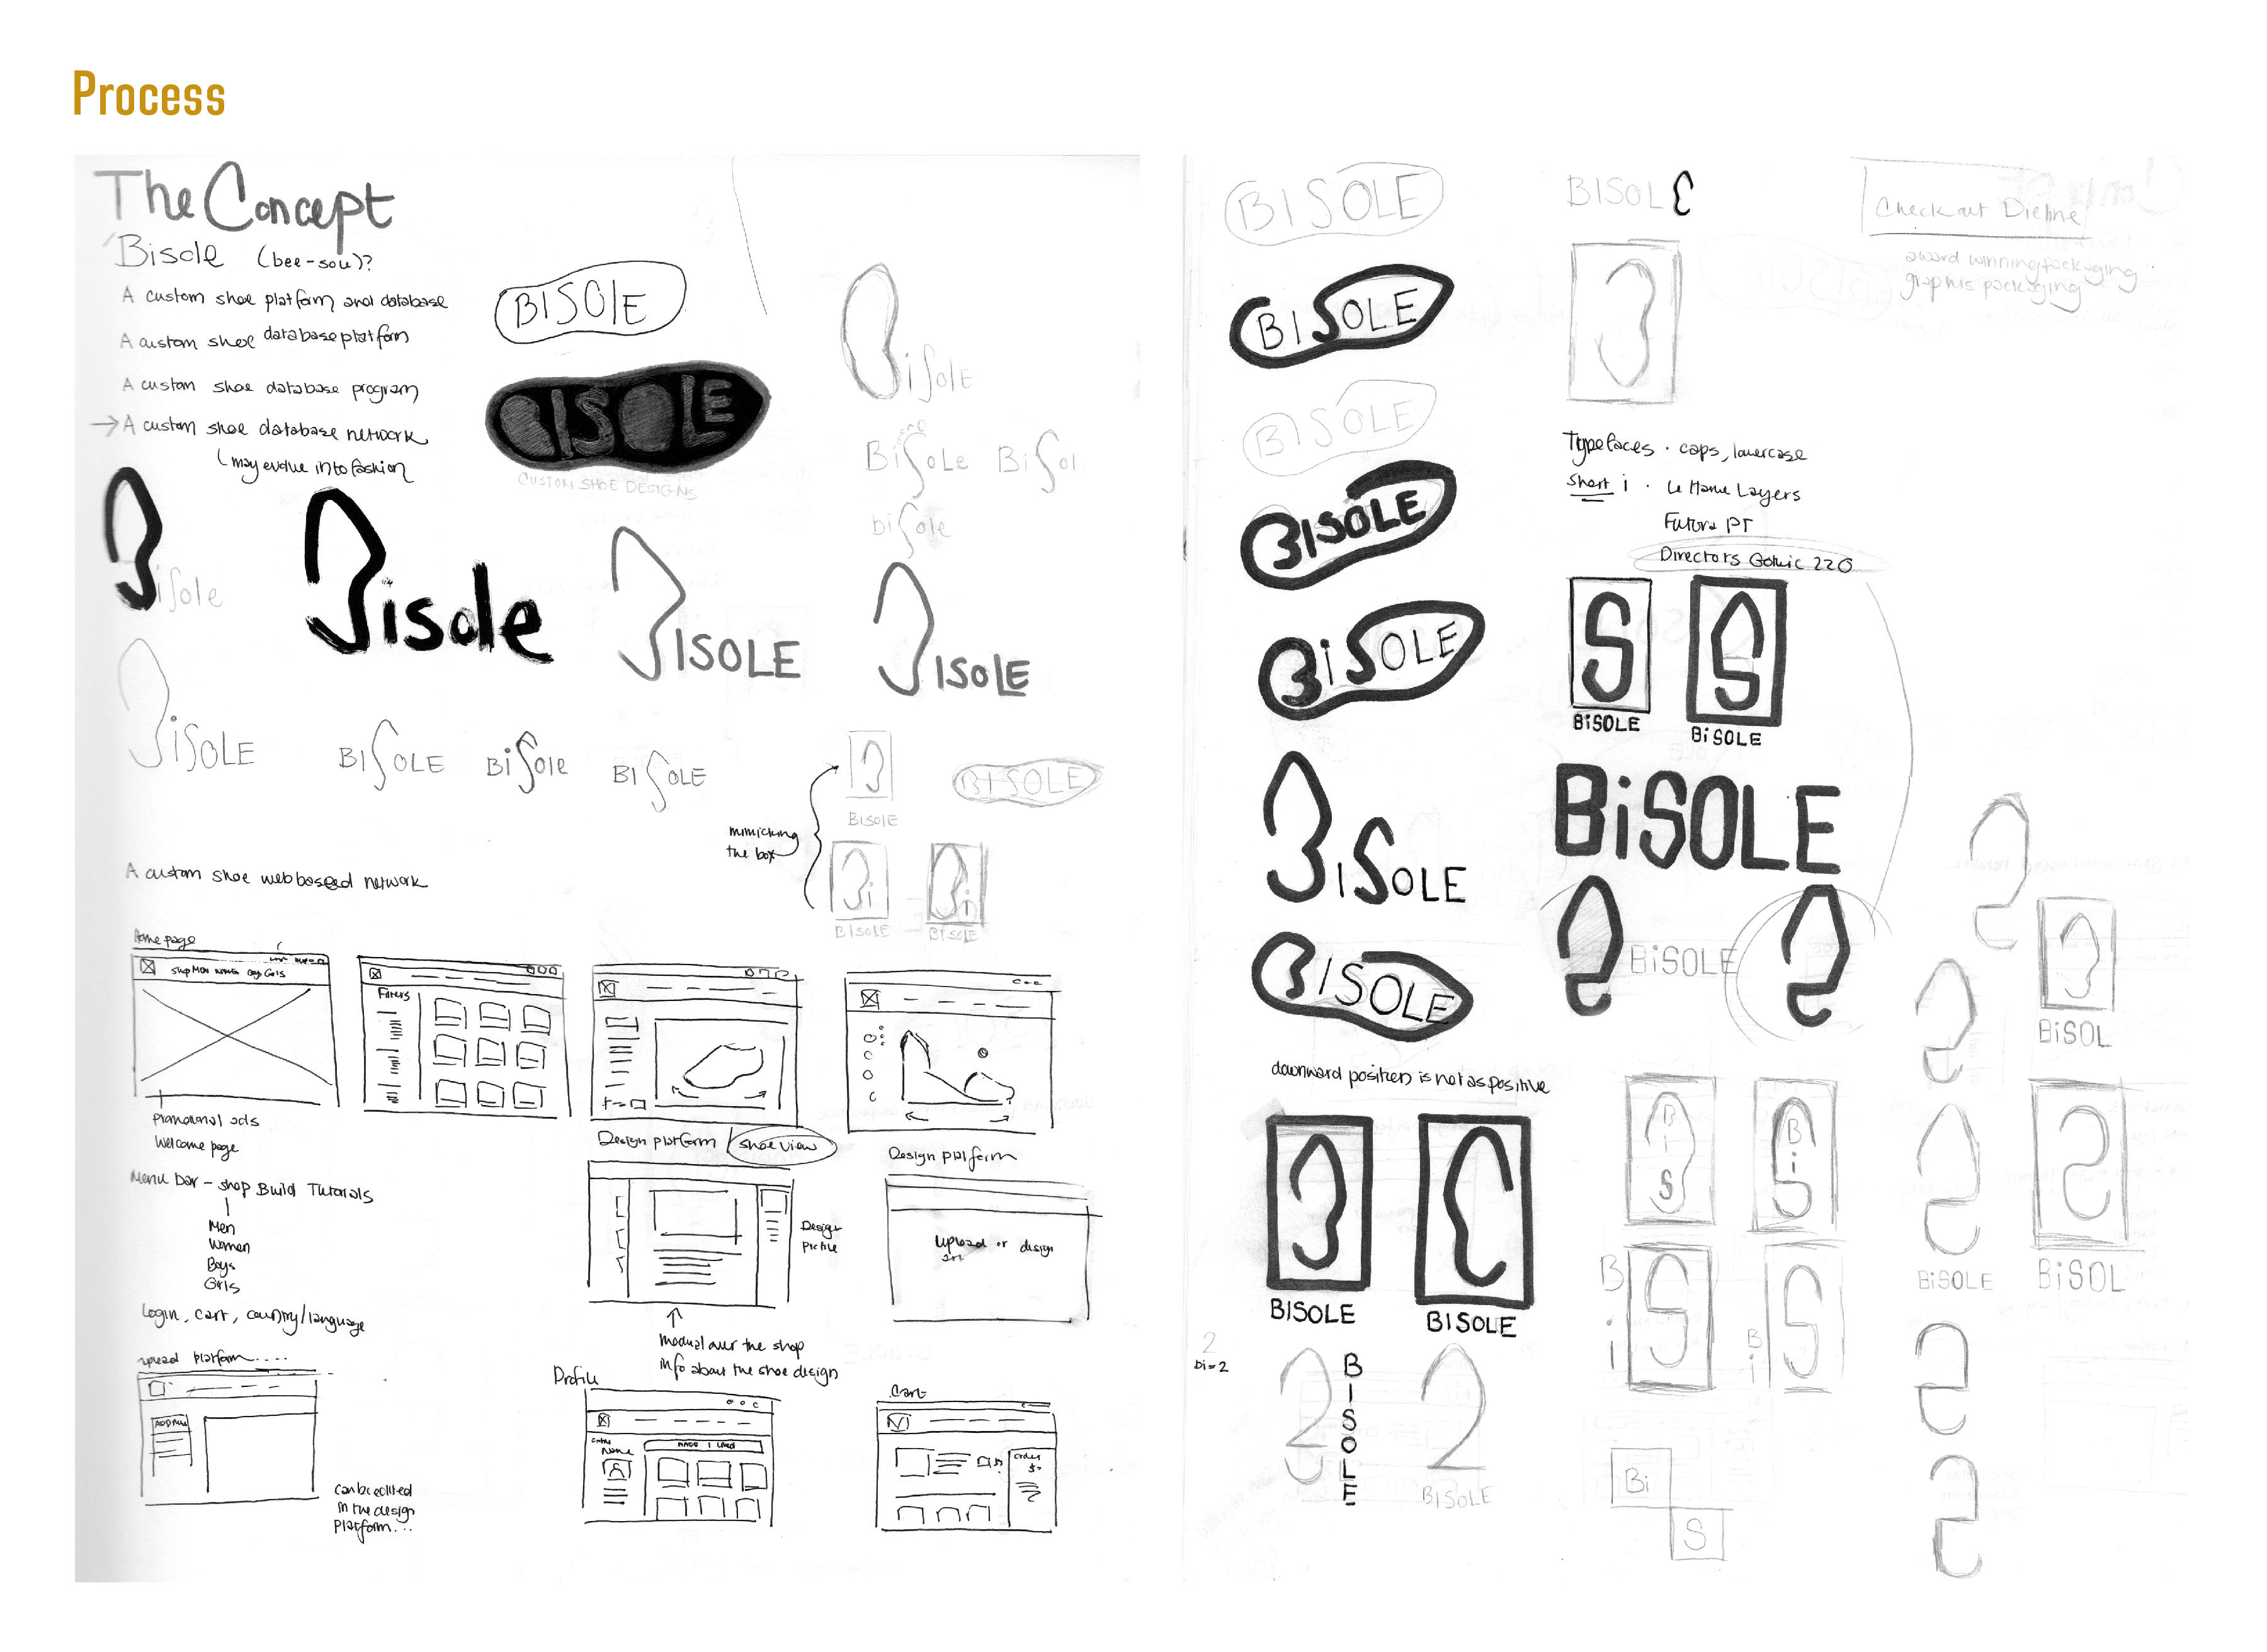 Process
The Concept
Bisole (bee-sou)?
A custom shoe platform and database
A custom shoe database platform
A custom shoe database program
→ A custom shoe database network
may evolve into fashion
BISOlE
BISOLE
CUSTOM SHOE DESIGNS
BiSole
BiSoLe
BiSol
biSole
BiSole
Bisole
BISOLE
BISOLE
BiSOLE
BISOLE
BiSole
BISOLE
mimicking
the box
B
BISOlE
BISOLE
Bi
BISOLE
Bi
BISOLE
A custom shoe web baseed network
Home page
Shop Men Women Boys Girls
Promotional ads
Welcome page
Filters
Design platform / shoe view
Design platform
Menu bar - shop Build Tutorials
Men
Women
Boys
Girls
Login, cart, country/language
Design
upload or design
info about the shoe design
upload platform....
can be edited
in the design
platform...
Profile
Name
Cart
order
BISOLE
BISOLE
BISOLE
BISOLE
BiSOLE
BISOLE
BISOLE
downward position is not as positive
BISOLE
BISOLE
2
bi=2
2
BISOLE
2
BISOLE
BISOLE
Typefaces · caps, lowercase
short i · Le Havre Layers
Futura PT
Directors Gothic 220
S
BiSOLE
S
BiSOLE
BiSOLE
BiSOLE
BiS
BiS
Bi S
Bi S
Bi
S
Check out Dieline
award winning packaging
graphic packaging
BiSOL
BiSOLE
BiSOL